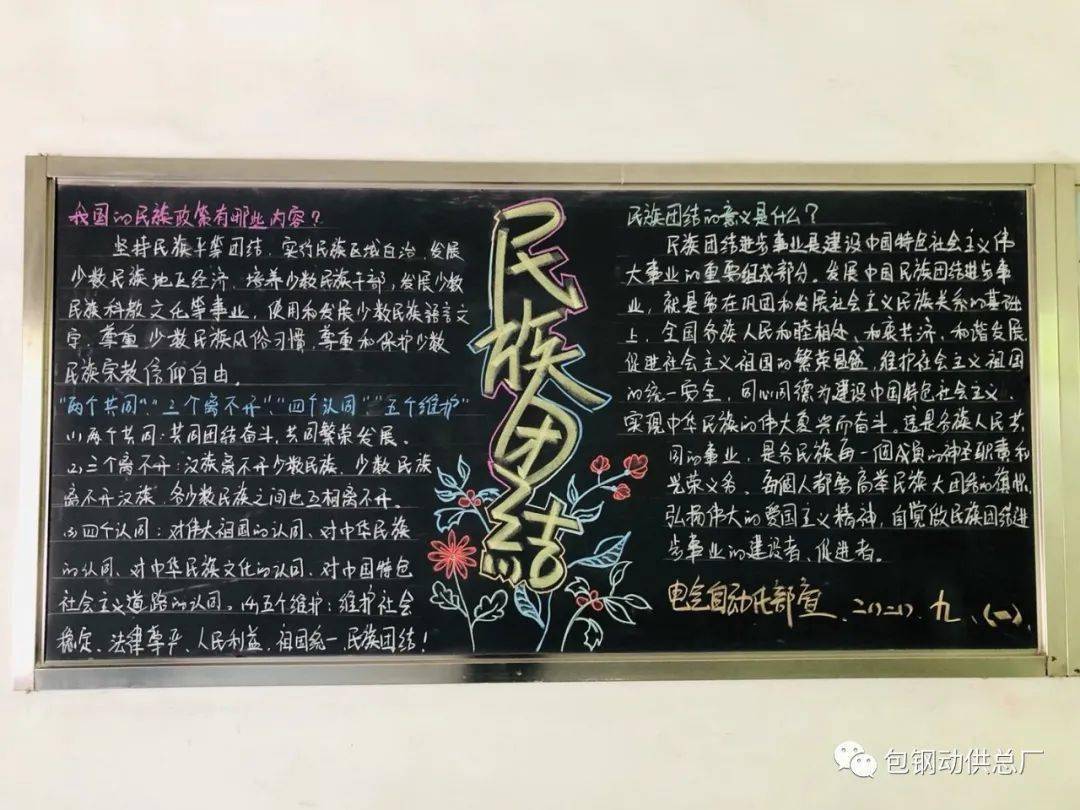 我国的民族政策有哪些内容？
坚持民族平等团结，实行民族区域自治，发展
少数民族地区经济，培养少数民族干部，发展少数
民族科教文化等事业，使用和发展少数民族语言文
字，尊重少数民族风俗习惯，尊重和保护少数
民族宗教信仰自由。
"两个共同"、"三个离不开"、"四个认同""五个维护"
(1)两个共同：共同团结奋斗，共同繁荣发展。
(2)三个离不开：汉族离不开少数民族，少数民族
离不开汉族，各少数民族之间也互相离不开。
(3)四个认同：对伟大祖国的认同、对中华民族
的认同、对中华民族文化的认同、对中国特色
社会主义道路的认同。(4)五个维护：维护社会
稳定、法律尊严、人民利益、祖国统一、民族团结！
民族团結
民族团结的意义是什么？
民族团结进步事业是建设中国特色社会主义伟
大事业的重要组成部分。发展中国民族团结进步事
业，就是要在巩固和发展社会主义民族关系的基础
上，全国各族人民和睦相处、和衷共济、和谐发展，
促进社会主义祖国的繁荣昌盛，维护社会主义祖国
的统一安全，同心同德为建设中国特色社会主义、
实现中华民族的伟大复兴而奋斗。这是各族人民共
同的事业，是各民族每一個成員的神圣职责和
光荣义务。每個人都要高举民族大团结的旗帜，
弘扬伟大的爱国主义精神，自觉做民族团结进
步事业的建设者、促进者。
电气自动化部宣 二〇二〇、九、(一)
包钢动供总厂